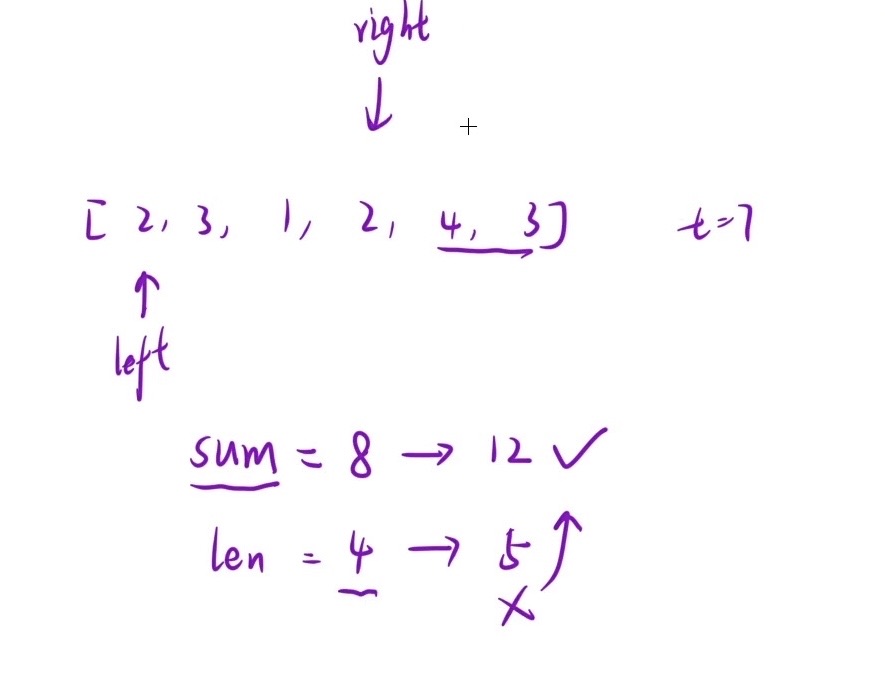 right
↓
[ 2, 3, 1, 2, 4, 3] t=7
↑
left
sum = 8 → 12 ✓
len = 4 → 5 ↑
×